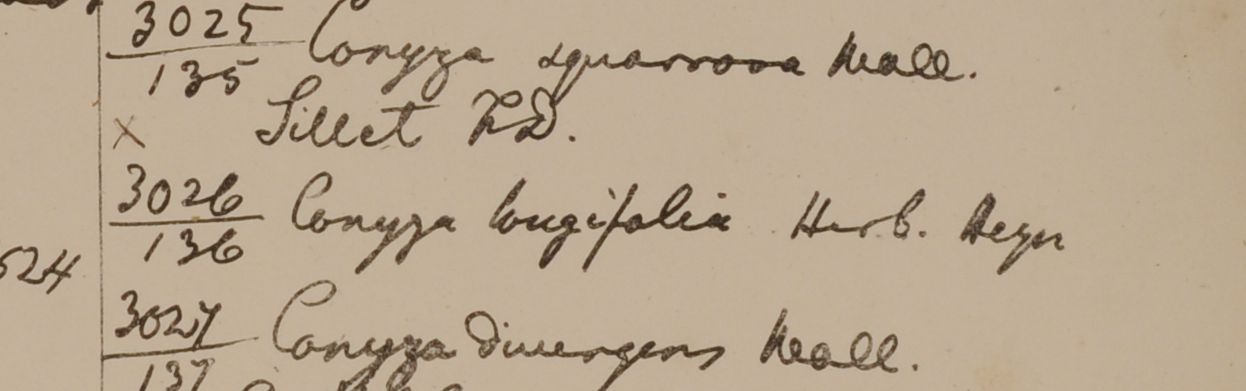 3025 Conyza squarrosa Wall.
135
× Sillet F.D.
3026 Conyza longifolia Herb. Heyn
136
524
3027 Conyza divergens Wall.
137